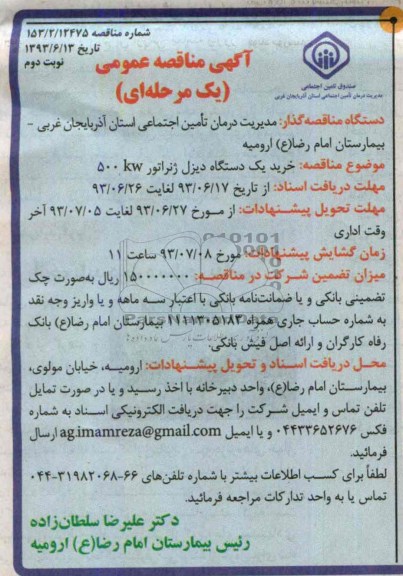 شماره مناقصه ۱۵۳/۲/۱۲۴۷۵
تاریخ ۱۳۹۳/۶/۱۳
نوبت دوم
آگهی مناقصه عمومی
(یک مرحله‌ای)
صندوق تامین اجتماعی
مدیریت درمان تأمین اجتماعی استان آذربایجان غربی
دستگاه مناقصه‌گذار: مدیریت درمان تأمین اجتماعی استان آذربایجان غربی -
بیمارستان امام رضا(ع) ارومیه
موضوع مناقصه: خرید یک دستگاه دیزل ژنراتور ۵۰۰ kw
مهلت دریافت اسناد: از تاریخ ۹۳/۰۶/۱۷ لغایت ۹۳/۰۶/۲۶
مهلت تحویل پیشـنهادات: از مـورخ ۹۳/۰۶/۲۷ لغایت ۹۳/۰۷/۰۵ آخر
وقت اداری
زمان گشایش پیشنهادات: مورخ ۹۳/۰۷/۰۸ ساعت ۱۱
میزان تضمین شـرکت در مناقصـه: ۱۵۰۰۰۰۰۰۰ ریال به‌صورت چک
تضمینی بانکی و یا ضمانت‌نامه بانکی با اعتبار سـه ماهه و یا واریز وجه نقد
به شماره حساب جاری همراه ۱۱۱۱۳۰۵۱۸۳ بیمارستان امام رضا(ع) بانک
رفاه کارگران و ارائه اصل فیش بانکی.
محـل دریافت اسـناد و تحویل پیشـنهادات: ارومیـه، خیابان مولوی،
بیمارسـتان امام رضا(ع)، واحد دبیرخانه با اخذ رسـید و یا در صورت تمایل
تلفن تماس و ایمیل شـرکت را جهت دریافت الکترونیکی اسـناد به شماره
فکس ۰۴۴۳۳۶۵۲۶۷۶ و یا ایمیل ag.imamreza@gmail.com ارسال
فرمائید.
لطفاً برای کسـب اطلاعات بیشتر با شماره تلفن‌های ۶۶-۳۱۹۸۲۰۶۸-۰۴۴
تماس یا به واحد تدارکات مراجعه فرمائید.
دکتر علیرضا سلطان‌زاده
رئیس بیمارستان امام رضا(ع) ارومیه